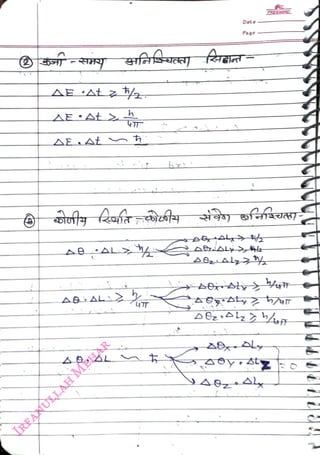 Date
Page
② ऊर्जा - समय अनिश्चितता सिद्धान्त -
ΔE · Δt ≥ ħ/2
ΔE · Δt ≥ h/4π
ΔE . Δt ~ ħ
कोणीय स्थिति - कोणीय संवेग अनिश्चितता -
Δθ · ΔL ≥ ħ/2 → Δθx · ΔLx ≥ ħ/2
→ Δθy · ΔLy ≥ ħ/2
→ Δθz . ΔLz ≥ ħ/2
Δθ . ΔL ≥ h/4π → Δθx . ΔLx ≥ h/4π
→ Δθy . ΔLy ≥ h/4π
→ Δθz . ΔLz ≥ h/4π
Δθ . ΔL ~ ħ → Δθx . ΔLy
→ Δθy . ΔLz = 0
→ Δθz . ΔLx
IRFANULLAH MEHAR